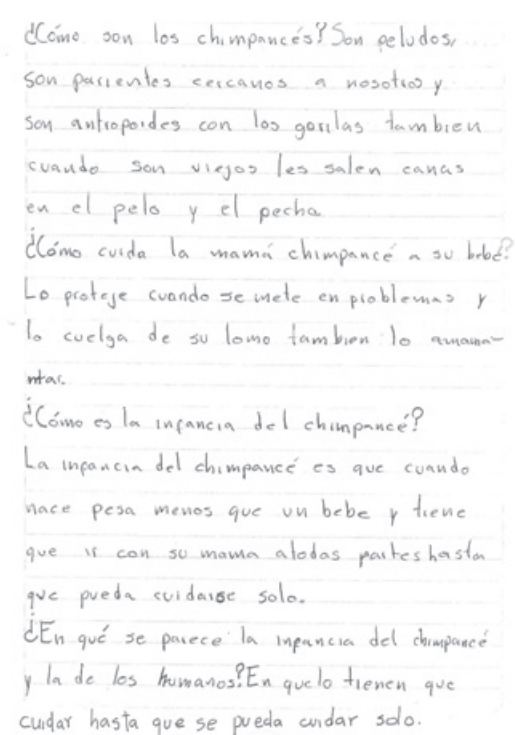 ¿Cómo son los chimpancés? Son peludos,
son parientes cercanos a nosotros y
son antropoides con los gorilas tambien
cuando son viejos les salen canas
en el pelo y el pecho
¿Cómo cuida la mamá chimpancé a su bebé?
Lo proteje cuando se mete en problemas y
lo cuelga de su lomo tambien lo amama-
ntar.
¿Cómo es la infancia del chimpancé?
La infancia del chimpancé es que cuando
nace pesa menos que un bebe y tiene
que ir con su mama atodas partes hasta
que pueda cuidarse solo.
¿En qué se parece la infancia del chimpancé
y la de los humanos? En quelo tienen que
cuidar hasta que se pueda cuidar solo.